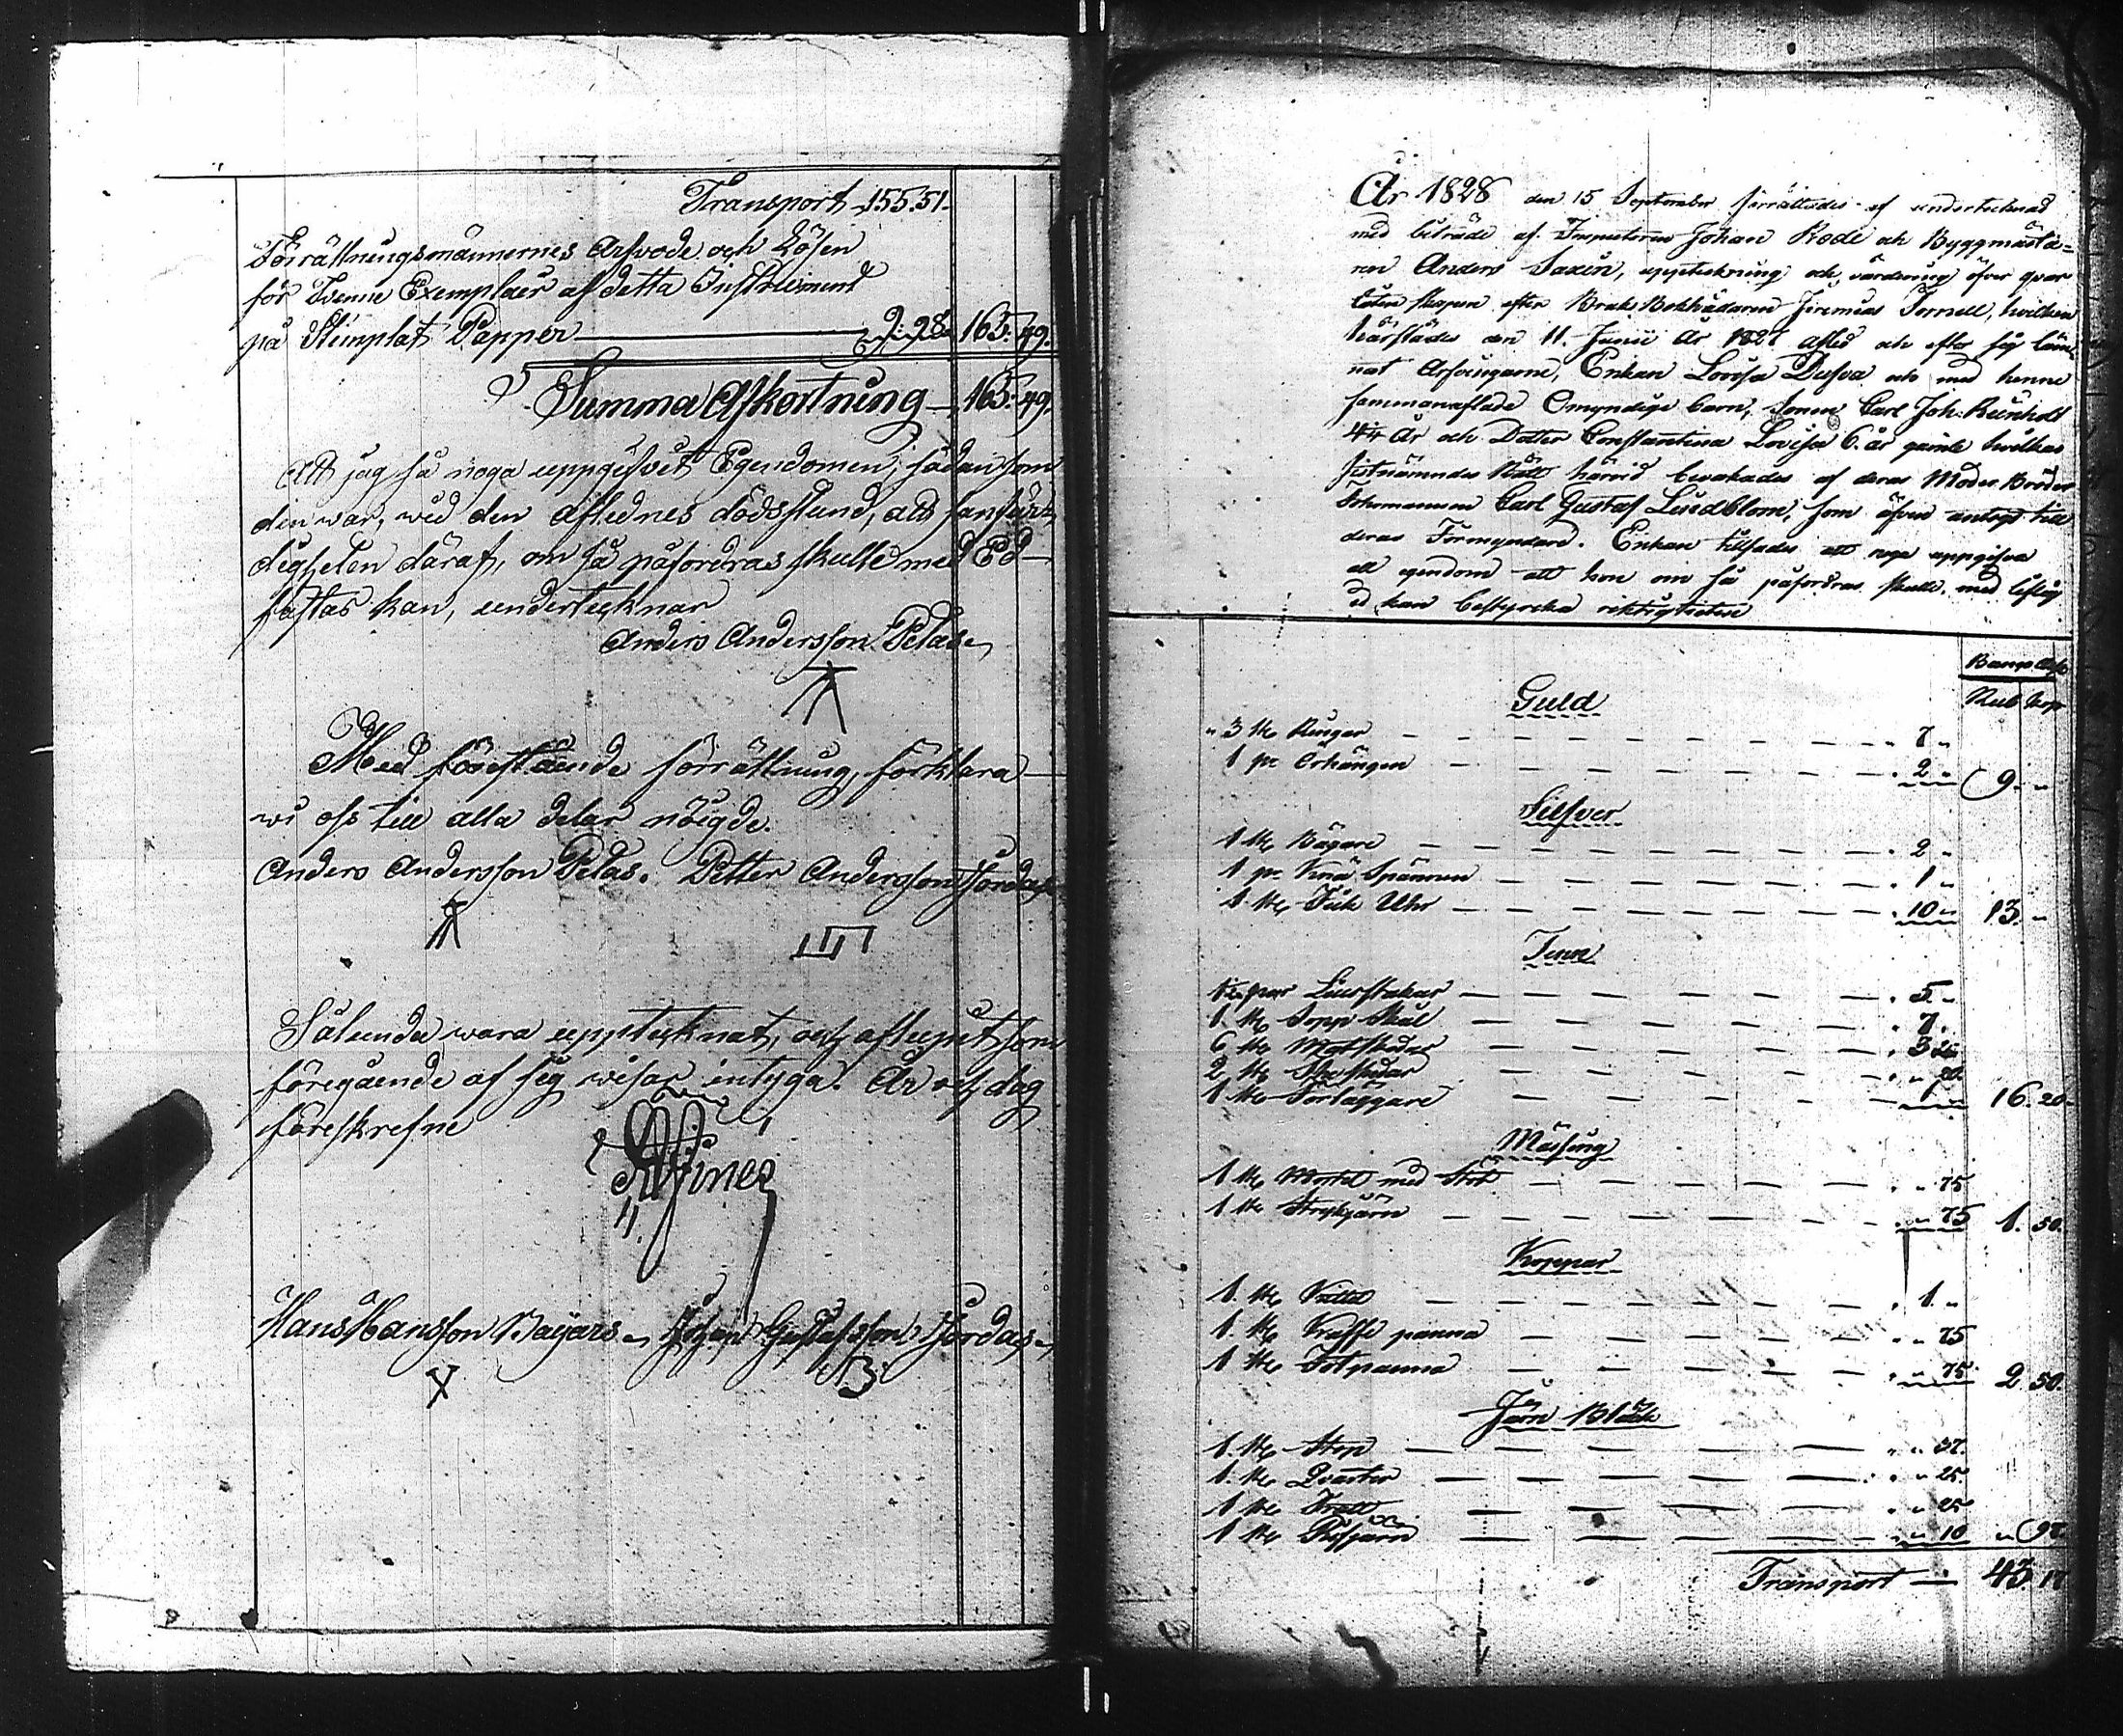 Transport 155.51.
Förrättningsmännernes Arfvode och Lösen
för Tvenne Exemplaer af detta Instrument
på Stemplat Papper 9:98 165.49.
Summa Afkortning 165.49.
Att jag så noga uppgifvet Egendomen, sådan som
den war, wed den Aflednes dödsstund, att sanfär-
digheten däraf, om så påfordras skulle med Ed
fästas kan, undertecknar
Anders Andersson Pelas
Med förestående förrättning, förklara
wi oss till alla delar nöigde.
Anders Andersson Pelas. Petter Andersson
Sålunda wara upptecknat, och aflupit som
föregående af seg wisar intyga. År och dag
föreskrefne
Hans Hansson Johan Gustafsson
År 1828 den 15 September förrättades af undertecknad
med biträde af Inspectoren Johan Rode och Byggmästa=
ren Anders Saxén, uppteckning och värdering öfver qvar
låtenskapen efter Bruks Bokhållaren Jeremias Tornell, hvilken
härstädes den 11. Junii År afled och efter sig läm-
nat Arfvingarne, Enkan Lovisa och med henne
sammanaflade Omyndige barn, Sonen Carl Joh: Reinhold
År och Dotter Constantina Lovisa 6. år gamle hvilkas
sistnämndes Rätt härvid bevakades af deras Moder Broder
Carl Gustaf Lindblom, som äfven antogs till
deras Förmyndare. Enkan tillsades att noga uppgifva
all egendom att hon om så påfordras skulle, med liflig
ed kan bestyrcka riktigheten
Banco Ass.
Rub Kop
Guld
3 st. Ringar 7 "
1 pr. Örhängen 2 " 9. "
Silfver
1 st. Bägare 2 "
1 pr. Knä Spännen 1 "
1 st. Fick Uhr 10 " 13. "
Tenn
par Ljusstakar 5. "
1 st. Sopp Skål 7.
6 st. Matskedar
2 st.
1 st. Förläggare 1 16. 20.
Mässing
1 st. Mortel med Stöt " 75
1 st. Strykjärn " 75 1. 50.
Koppar
1 st. Kittel 1. "
1 st. Kaffe panna " 75
1 st. Fotpanna " 75 2. 50.
Järn Bläck
1. st. Stop " 37.
1. st. Qvarter " 25.
1 st. Tratt " 25
1 st. Rifjärn " 10 " 97
Transport 43. 17